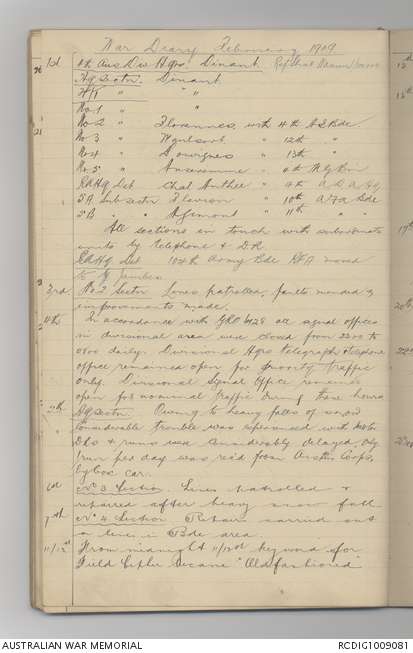 War Diary February 1909
1st 4th Aus Div Hqrs. Dinant
Hq Sectn. Dinant
No 1 " "
No 2 " Florennes, with 4th A I Bde
No 3 " " 12th "
No 4 " " 13th "
No 5 " " 4th M G Bn
RAHq Det Chat Anthee " 4th A D A Hq
5A Subsectn Flavion " 10th AFA Bde
5B " " " 11th "
All sections in touch with subordinate
units by telephone & DR
RAHq Det 104th Army Bde RFA moved
to Jambes
3rd No 2 Sectn Lines patrolled, faults mended &
improvements made.
4th In accordance with GRO all signal offices
in divisional area were closed from 2200 to
0800 daily. Divisional Hqrs telegraph & telephone
office remained open for priority traffic
only. Divisional Signal Office remained
open for nominal traffic during these hours
Hq Sectn. Owing to heavy falls of snow
considerable trouble was experienced with
DRs & runs were considerably delayed. Only
1 run per day was rec'd from Austn Corps,
by box car.
6th No 3 Section Lines patrolled &
repaired after heavy snow fall
7th No 4 Section Repairs carried out
on lines in Bde area
11/12th From midnight 11/12th keyword for
Field Cipher became "Old fashioned"
AUSTRALIAN WAR MEMORIAL
RCDIG1009081